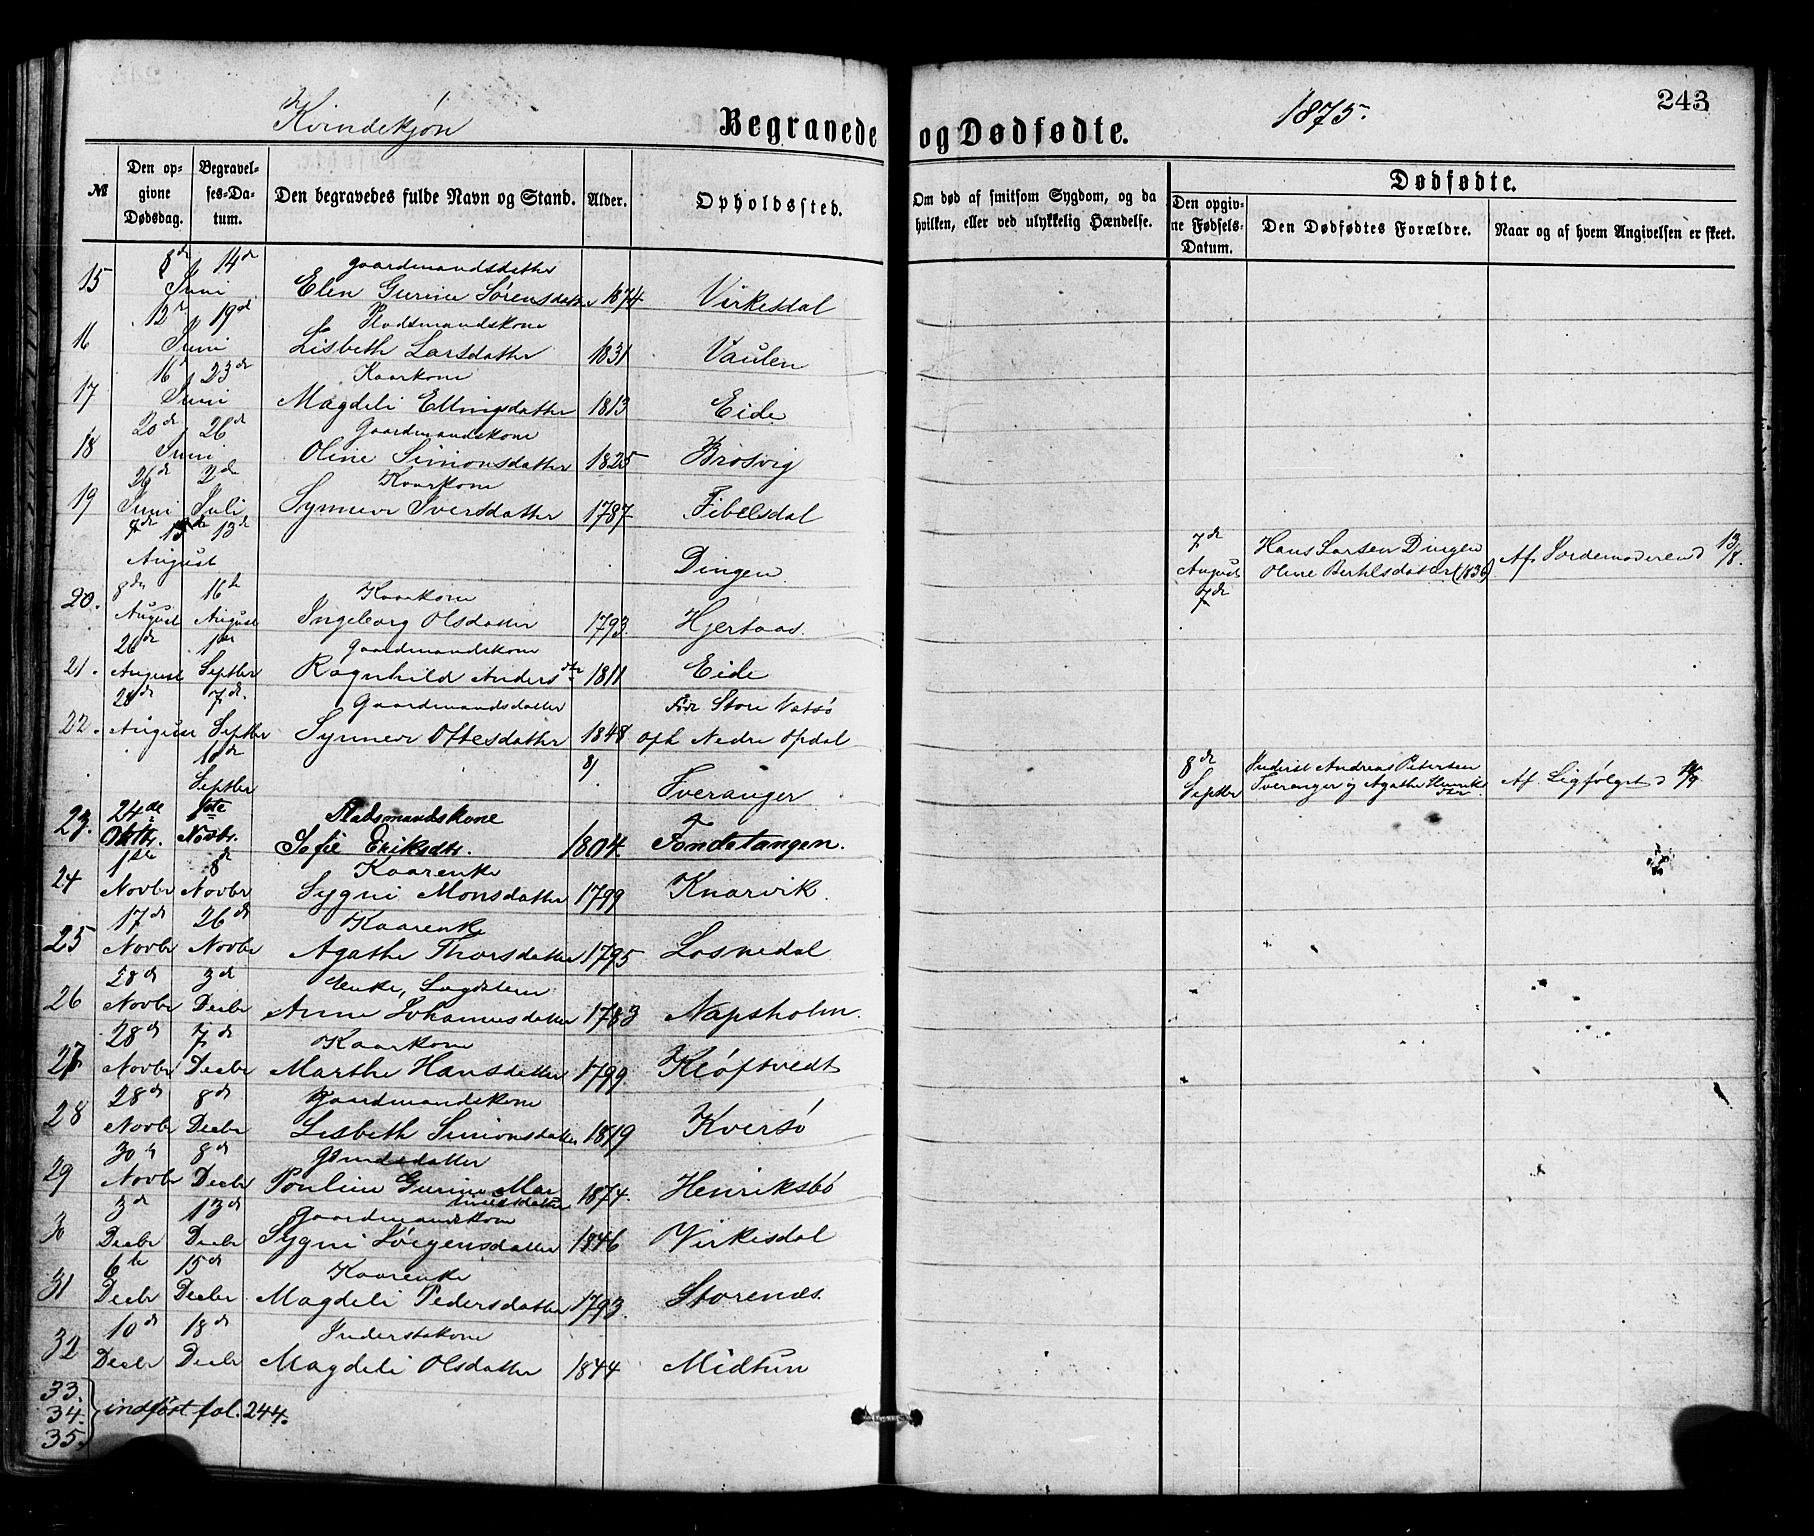 Kvindekjøn
Begravede og Dødfødte.
1875.
243
№
Den opgivne Dødsdag.
Begravelses-Datum.
Den begravedes fulde Navn og Stand.
Alder.
Opholdssted.
Om død af smitsom Sygdom, og da hvilken, eller ved ulykkelig Hændelse.
Dødfødte.
Den opgivne Fødsels-Datum.
Den Dødfødtes Forældre.
Naar og af hvem Angivelsen er skeet.
8de 14de gaardmandsdatter
15 Juni Elen Gurine Sørensdatter 1874 Virkesdal
12te 19de Pladsmandskone
16 Juni Lisbeth Larsdatter 1831 Vaulen
16 23de Kaarkone
17 Juni Magdeli Ellingsdatter 1813 Eide
20de 26de Gaardmandskone
18 Juni Oline Simonsdatter 1825 Brosvig
26de 2de Kaarkone
19 Juni Juli Synneve Iversdatter 1787 Fibelsdal
7de 13de
August Dingen
7de August Hans Larsen Dingen Oline Bertelsdatter (1836) Af Jordemoderen d 13/8.
8de 16de Kaarkone
20. August August Ingeborg Olsdatter 1793. Hjertaas.
26de 1ste Gaardmandskone
21. August Septbr Ragnhild Andersdtr 1811 Eide
28de 7de Gaardmandsdatter Fød Store Vatsø
22. August Septbr Synneve Oftesdatter 1848 oph Nedre Opdal
Septbr Tveranger
8de Septbr Inderst Andreas Petersen Tveranger og Agathe Henriksdtr Af Ligfølget d
24de 1ste Pladsmandskone
23. Oktbr. Novbr. Sofie Eriksdtr. 1804. Fondetangen.
1ste 8de Kaarenke
24 Novbr Novbr Sygni Monsdatter 1799 Knarvik
17de 26de Kaarenke
25 Novbr Novbr Agathe Thorsdatter 1795 Losnedal
28de 3de Enke, Lægdslem
26 Novbr Decbr Anne Johannesdatter 1783 Napsholm.
28de 7de Kaarkone
27 Novbr Decbr Marthe Hansdatter 1799 Kløftvedt
28de 8de Gaardmandskone
28 Novbr Decbr Lisbeth Simonsdatter 1819 Kversø
30te 8de
29 Novbr Decbr Pouline Gurine Martinusdatter 1874. Henriksbø
3de 13de Gaardmandskone
30 Decbr Decbr Sygni Jørgensdatter 1846 Virkesdal
6te 15de Kaarenke
31 Decbr Decbr Magdeli Pedersdatter 1793. Storenæs
10de 18de Inderstekone
32 Decbr Decbr Magdeli Olsdatter 1844 Midtun
33.
34. indført fol. 244.
35.